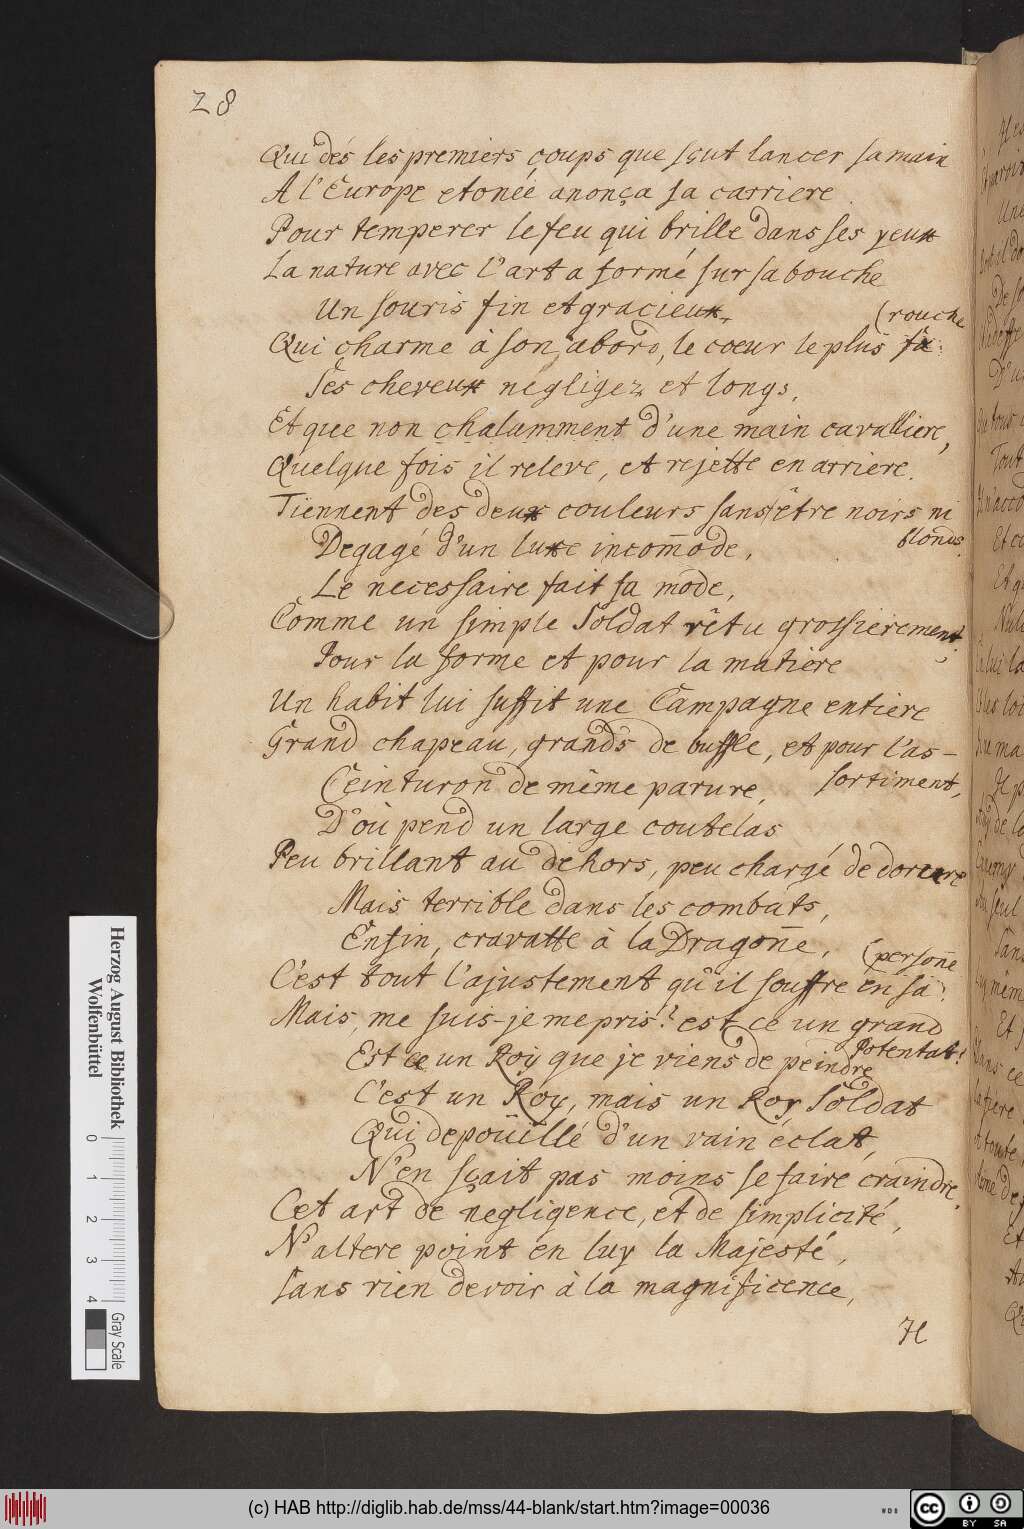 28
Qui dés les premiers coups que sçut lancer sa main
A l'Europe etonéé anonça sa carriere
Pour temperer le feu qui brille dans ses yeux
La nature avec l'art a formé sur sa bouche
Un souris fin et gracieux,
(rouche
Qui charme à son abord, le cœur le plus fa:
Ses cheveux negligez et longs,
Et que non chalamment d'une main cavalliere,
Quelque fois il releve, et rejette en arriere.
Tiennent des deux couleurs sans être noirs ni
blonds.
Degagé d'un luxe incom̄ode,
Le necessaire fait sa mode,
Comme un simple Soldat vêtu grossierement,
Pour la forme et pour la matiere
Un habit lui suffit une Campagne entiere
Grand chapeau, grands de buffle, et pour l'as-
sortiment,
Ceinturon de même parure,
D'où pend un large coutelas
Peu brillant au dehors, peu chargé de dorure
Mais terrible dans les combats,
Enfin, cravatte à la Dragon̄e,
(person̄e
C'est tout l'ajustement qu'il souffre en sa:
Mais, me suis-je mepris? est ce un grand
Potentat!
Est ce un Roy que je viens de peindre
C'est un Roy, mais un Roy Soldat
Qui depoüillé d'un vain éclat,
N'en sçait pas moins se faire craindre.
Cet art de negligence, et de simplicité,
N'altere point en luy la Majesté,
Sans rien devoir à la magnificence,
Il
Herzog August Bibliothek
Wolfenbüttel
0 1 2 3 4
Gray Scale
(c) HAB http://diglib.hab.de/mss/44-blank/start.htm?image=00036
WDB
cc BY SA